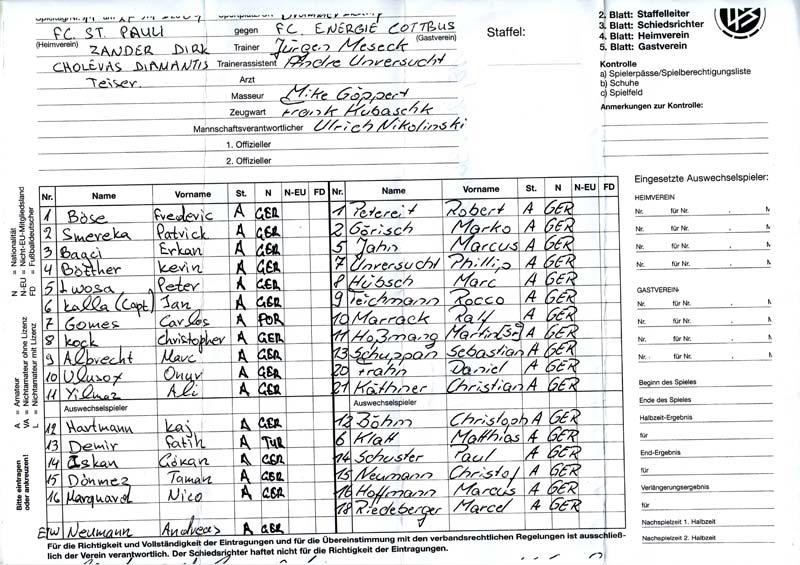 FC ST. PAULI gegen FC ENERGIE COTTBUS
(Heimverein) (Gastverein)
ZANDER DIRK Trainer Jürgen Meseck
CHOLEVAS DIAMANTIS Trainerassistent Andre Unversucht
Teiser. Arzt
Masseur Mike Göppert
Zeugwart Frank Kubaschk
Mannschaftsverantwortlicher Ulrich Nikolinski
1. Offizieller
2. Offizieller
Staffel:
2. Blatt: Staffelleiter
3. Blatt: Schiedsrichter
4. Blatt: Heimverein
5. Blatt: Gastverein
Kontrolle
a) Spielerpässe/Spielberechtigungsliste
b) Schuhe
c) Spielfeld
Anmerkungen zur Kontrolle:
Nr. Name Vorname St. N N-EU FD Nr. Name Vorname St. N N-EU FD
1 Böse Frederic A GER 1 Petereit Robert A GER
2 Smereka Patrick A GER 2 Görisch Marko A GER
3 Bagci Erkan A GER 5 Jahn Marcus A GER
4 Bötther Kevin A GER 7 Unversucht Phillip A GER
5 Lwosa Peter A GER 8 Hübsch Marc A GER
6 Kalla (Capt) Jan A GER 9 Teichmann Rocco A GER
7 Gomes Carlos A POR 10 Marrack Ralf A GER
8 Kock Christopher A GER 11 Hoßmang Martin(Sr) A GER
9 Albrecht Marc A GER 13 Schuppan Sebastian A GER
10 Ulusoy Onur A GER 20 Frahn Daniel A GER
11 Yilmaz Ali A GER 21 Käthner Christian A GER
Auswechselspieler Auswechselspieler
12 Hartmann Kaj A GER 12 Böhm Christoph A GER
13 Demir Fatih A TUR 6 Klatt Matthias A GER
14 Iskan Gökan A GER 14 Schuster Paul A GER
15 Dönmez Taman A GER 15 Neumann Christof A GER
16 Marquardt Nico A GER 16 Hoffmann Marcus A GER
18 Riedeberger Marcel A GER
ETW Neumann Andreas A GER
Für die Richtigkeit und Vollständigkeit der Eintragungen und für die Übereinstimmung mit den verbandsrechtlichen Regelungen ist ausschließ-
lich der Verein verantwortlich. Der Schiedsrichter haftet nicht für die Richtigkeit der Eintragungen.
N = Nationalität
N-EU = Nicht-EU-Mitgliedsland
FD = Fußballdeutscher
A = Amateur
VA = Nichtamateur ohne Lizenz
L = Nichtamateur mit Lizenz
Bitte eintragen
oder ankreuzen!
Eingesetzte Auswechselspieler:
HEIMVEREIN
Nr. für Nr. . M
Nr. für Nr. . M
Nr. für Nr. . M
Nr. für Nr. . M
GASTVEREIN
Nr. für Nr. . M
Nr. für Nr. . M
Nr. für Nr. . M
Nr. für Nr. . M
Beginn des Spieles
Ende des Spieles
Halbzeit-Ergebnis
für
End-Ergebnis
für
Verlängerungsergebnis
für
Nachspielzeit 1. Halbzeit
Nachspielzeit 2. Halbzeit